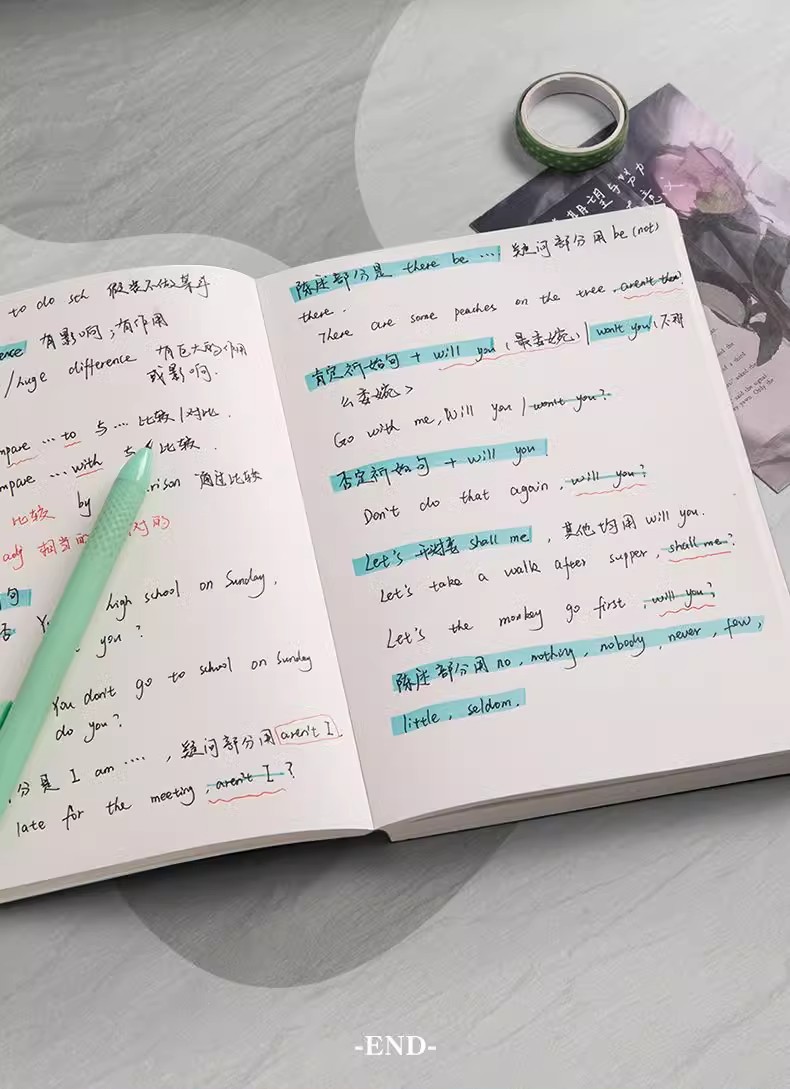 to do sth 假装不做某事
ence 有影响;有作用
/huge difference 有巨大的作用
或影响.
mpare … to 与… 比较/对比.
mpare … with 与 比较.
比较 by rison 通过比较
adj 相当的 对的
句
否 high school on Sunday,
you?
You don't go to school on Sunday
do you?
分是 I am …, 疑问部分用 aren't I.
late for the meeting, aren't I?
陈述部分是 there be … 疑问部分用 be (not)
there.
There are some peaches on the tree, aren't there?
肯定祈始句 + will you (最委婉) | won't you (不那
么委婉)
Go with me, Will you / won't you?
否定祈始句 + will you
Don't do that again, will you?
Let's 开头 shall me, 其他均用 will you.
Let's take a walk after supper, shall me?
Let's the monkey go first, will you?
陈述部分用 no, nothing, nobody, never, few,
little, seldom.
期望与努力
意义
-END-